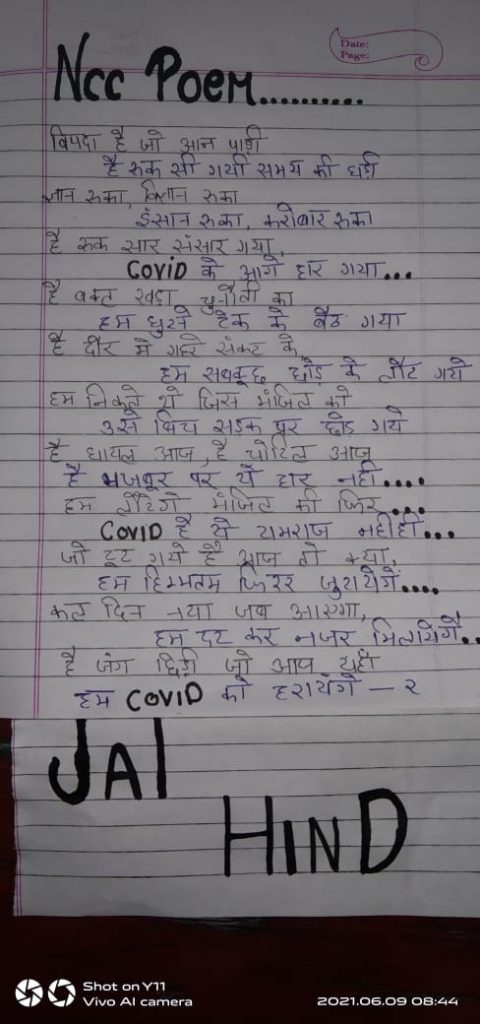 Date:
Page:
Ncc Poem..........
विपदा है जो आन पाड़ी
है रुक सी गयी समय की घड़ी
ज्ञान रुका, विज्ञान रुका
इंसान रुका, करोबार रुका
है रुक सार संसार गया,
COVID के आगे हार गया...
है वक्त खड़ा चुनौती का
हम घुटने टेक के बैठ गया
है दौर में गहरे संकट के,
हम सबकुछ छोड़ के लौट गये
हम निकले थे जिस मंजिल को
उसे बिच सड़क पर छोड़ गये
है घायल आज, है चोटिल आज
है मजबूर पर ये हार नही....
हम लौटेंगे मंजिल की फिर....
COVID है ये यमराज नहीही...
जो टूट गये है आज तो क्या,
हम हिम्मतम फिरर जुटायेगें....
कल दिन नया जब आएगा,
हम डट कर नजर मिलायेगें..
है जंग छिड़ी जो आप यहाँ
हम COVID को हरायेंगे – २
JAI
HIND
Shot on Y11
Vivo AI camera
2021.06.09 08:44